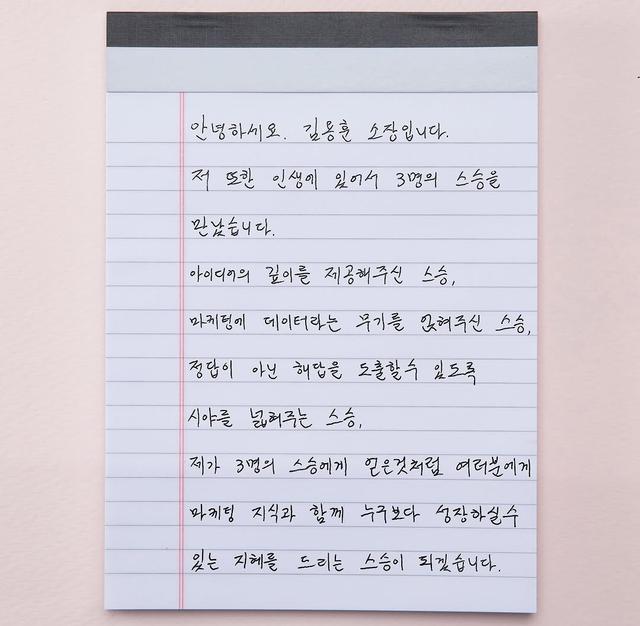 안녕하세요. 김용훈 소장입니다.
저 또한 인생에 있어서 3명의 스승을
만났습니다.
아이디어의 깊이를 제공해주신 스승,
마케팅에 데이터라는 무기를 얹혀주신 스승,
정답이 아닌 해답을 도출할수 있도록
시야를 넓혀주는 스승,
제가 3명의 스승에게 얻은것처럼 여러분에게
마케팅 지식과 함께 누구보다 성장하실수
있는 지혜를 드리는 스승이 되겠습니다.